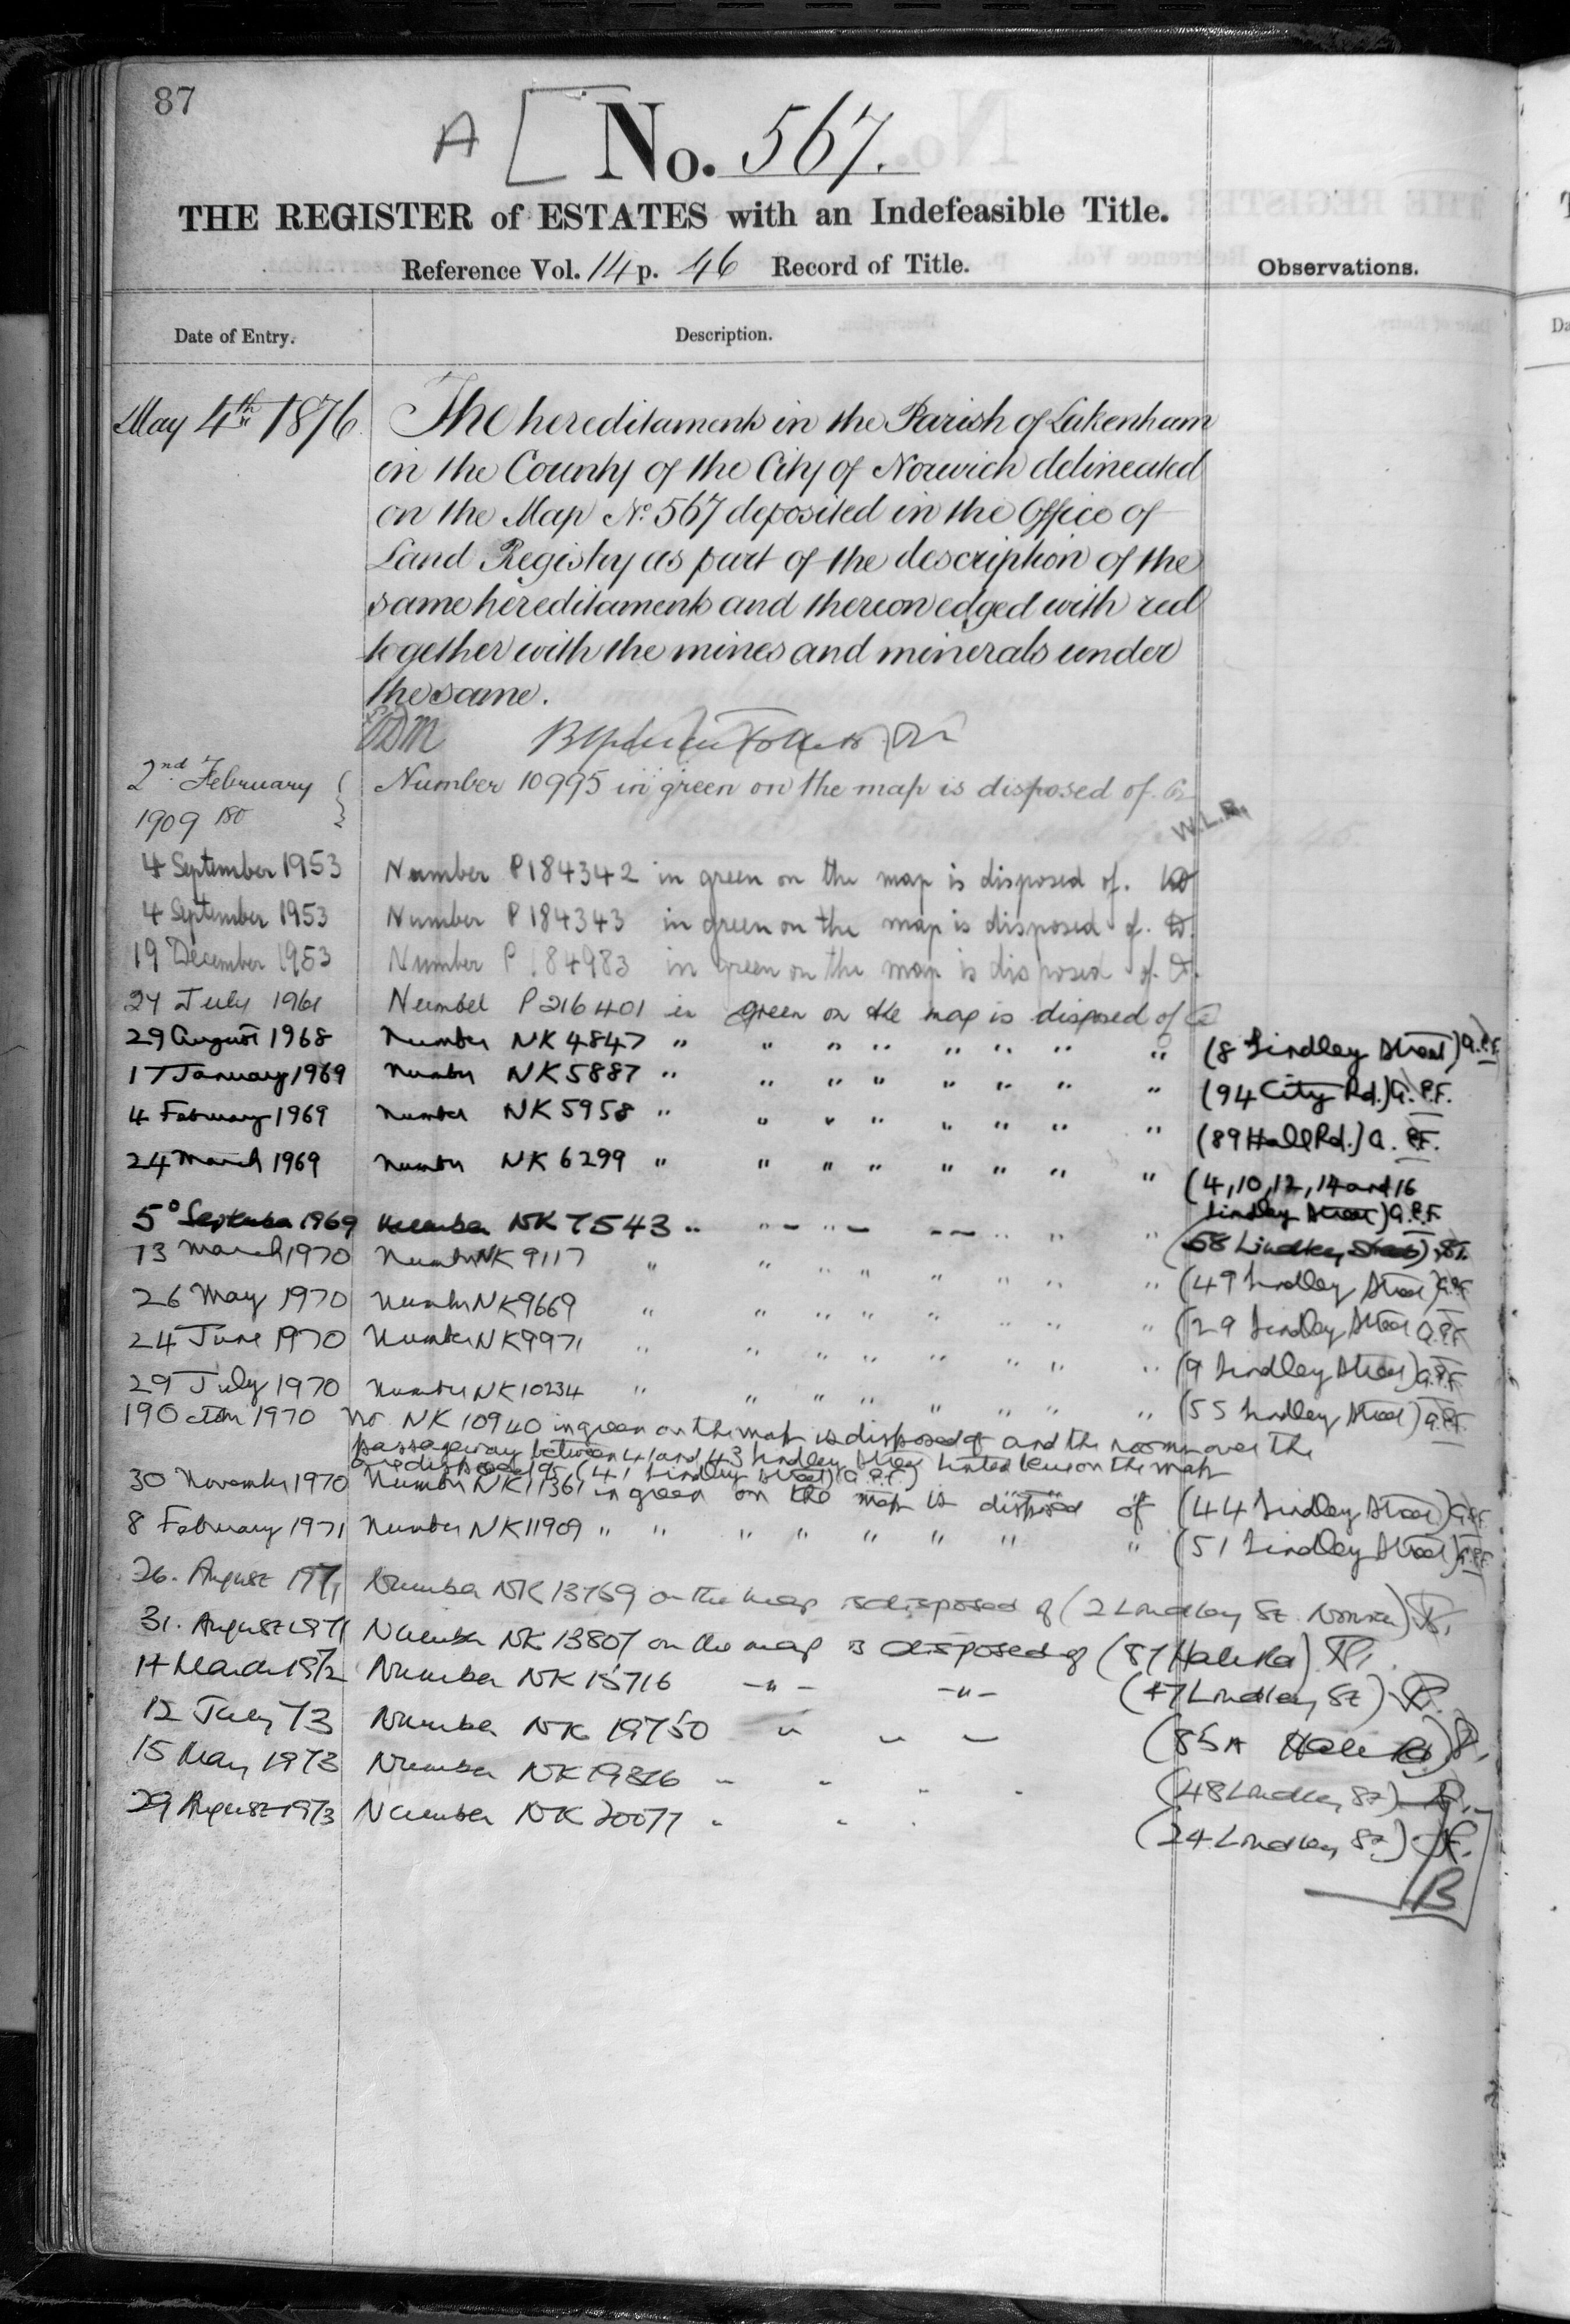 87
A [ No. 567.
THE REGISTER of ESTATES with an Indefeasible Title.
Reference Vol. 14 p. 46 Record of Title.
Observations.
Date of Entry.
Description.
May 4th 1876 The hereditaments in the Parish of Lakenham
in the County of the City of Norwich delineated
on the Map No. 567 deposited in the Office of
Land Registry as part of the description of the
same hereditaments and thereon edged with red
together with the mines and minerals under
the same.
2nd February Number 10995 in green on the map is disposed of.
1909
W.L.R.
4 September 1953 Number P184342 in green on the map is disposed of.
4 September 1953 Number P184343 in green on the map is disposed of.
19 December 1953 Number P184983 in green on the map is disposed of.
24 July 1961 Number P216401 in green on the map is disposed of
29 August 1968 Number NK 4847 " " " " " " " " (8 Lindley Street) A.P.F.
17 January 1969 Number NK 5887 " " " " " " " " (94 City Rd.) A.P.F.
4 February 1969 Number NK 5958 " " " " " " " " (89 Hall Rd.) A.P.F.
24 March 1969 Number NK 6299 " " " " " " " " (4, 10, 12, 14 and 16
Lindley Street) A.P.F.
5 September 1969 Number NK 7543 " " " " " " (58 Lindley Street)
13 March 1970 Number NK 9117 " " " " " " " " (49 Lindley Street) A.P.F.
26 May 1970 Number NK9669 " " " " " " " " (29 Lindley Street A.P.F.
24 June 1970 Number NK9971 " " " " " " " " (9 Lindley Street) A.P.F.
29 July 1970 Number NK10234 " " " " " " " " (55 Lindley Street) A.P.F.
19 Octbr 1970 No. NK 10940 in green on the map is disposed of and the rooms over the
passageway between 41 and 43 Lindley Street tinted blue on the map
are disposed of (41 Lindley Street) (A.P.F.)
30 November 1970 Number NK11361 in green on the map is disposed of (44 Lindley Street) A.P.F.
8 February 1971 Number NK11909 " " " " " " " (51 Lindley Street) A.P.F.
26. August 1971 Number NK 13769 on the map is disposed of (2 Lindley St. )
31. August 1971 Number NK 13807 on the map is disposed of (87 Hall Rd)
14 March 1972 Number NK 15716 - " - - " - (47 Lindley St)
12 July 73 Number NK 19750 " " " (85A Hall Rd)
15 May 1973 Number NK 19326 " " " " (48 Lindley St)
29 August 1973 Number NK 20077 " " " (24 Lindley St)
B ]